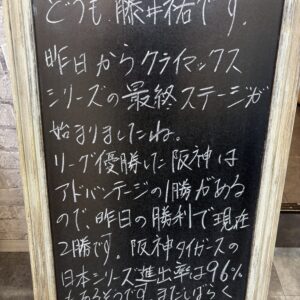 どうも、藤井祐です。
昨日からクライマックス
シリーズの最終ステージが
始まりましたね。
リーグ優勝した阪神は
アドバンテージの1勝がある
ので、昨日の勝利で現在
2勝です。阪神タイガースの
日本シリーズ進出率は96%
もあるそうです。またしばらく